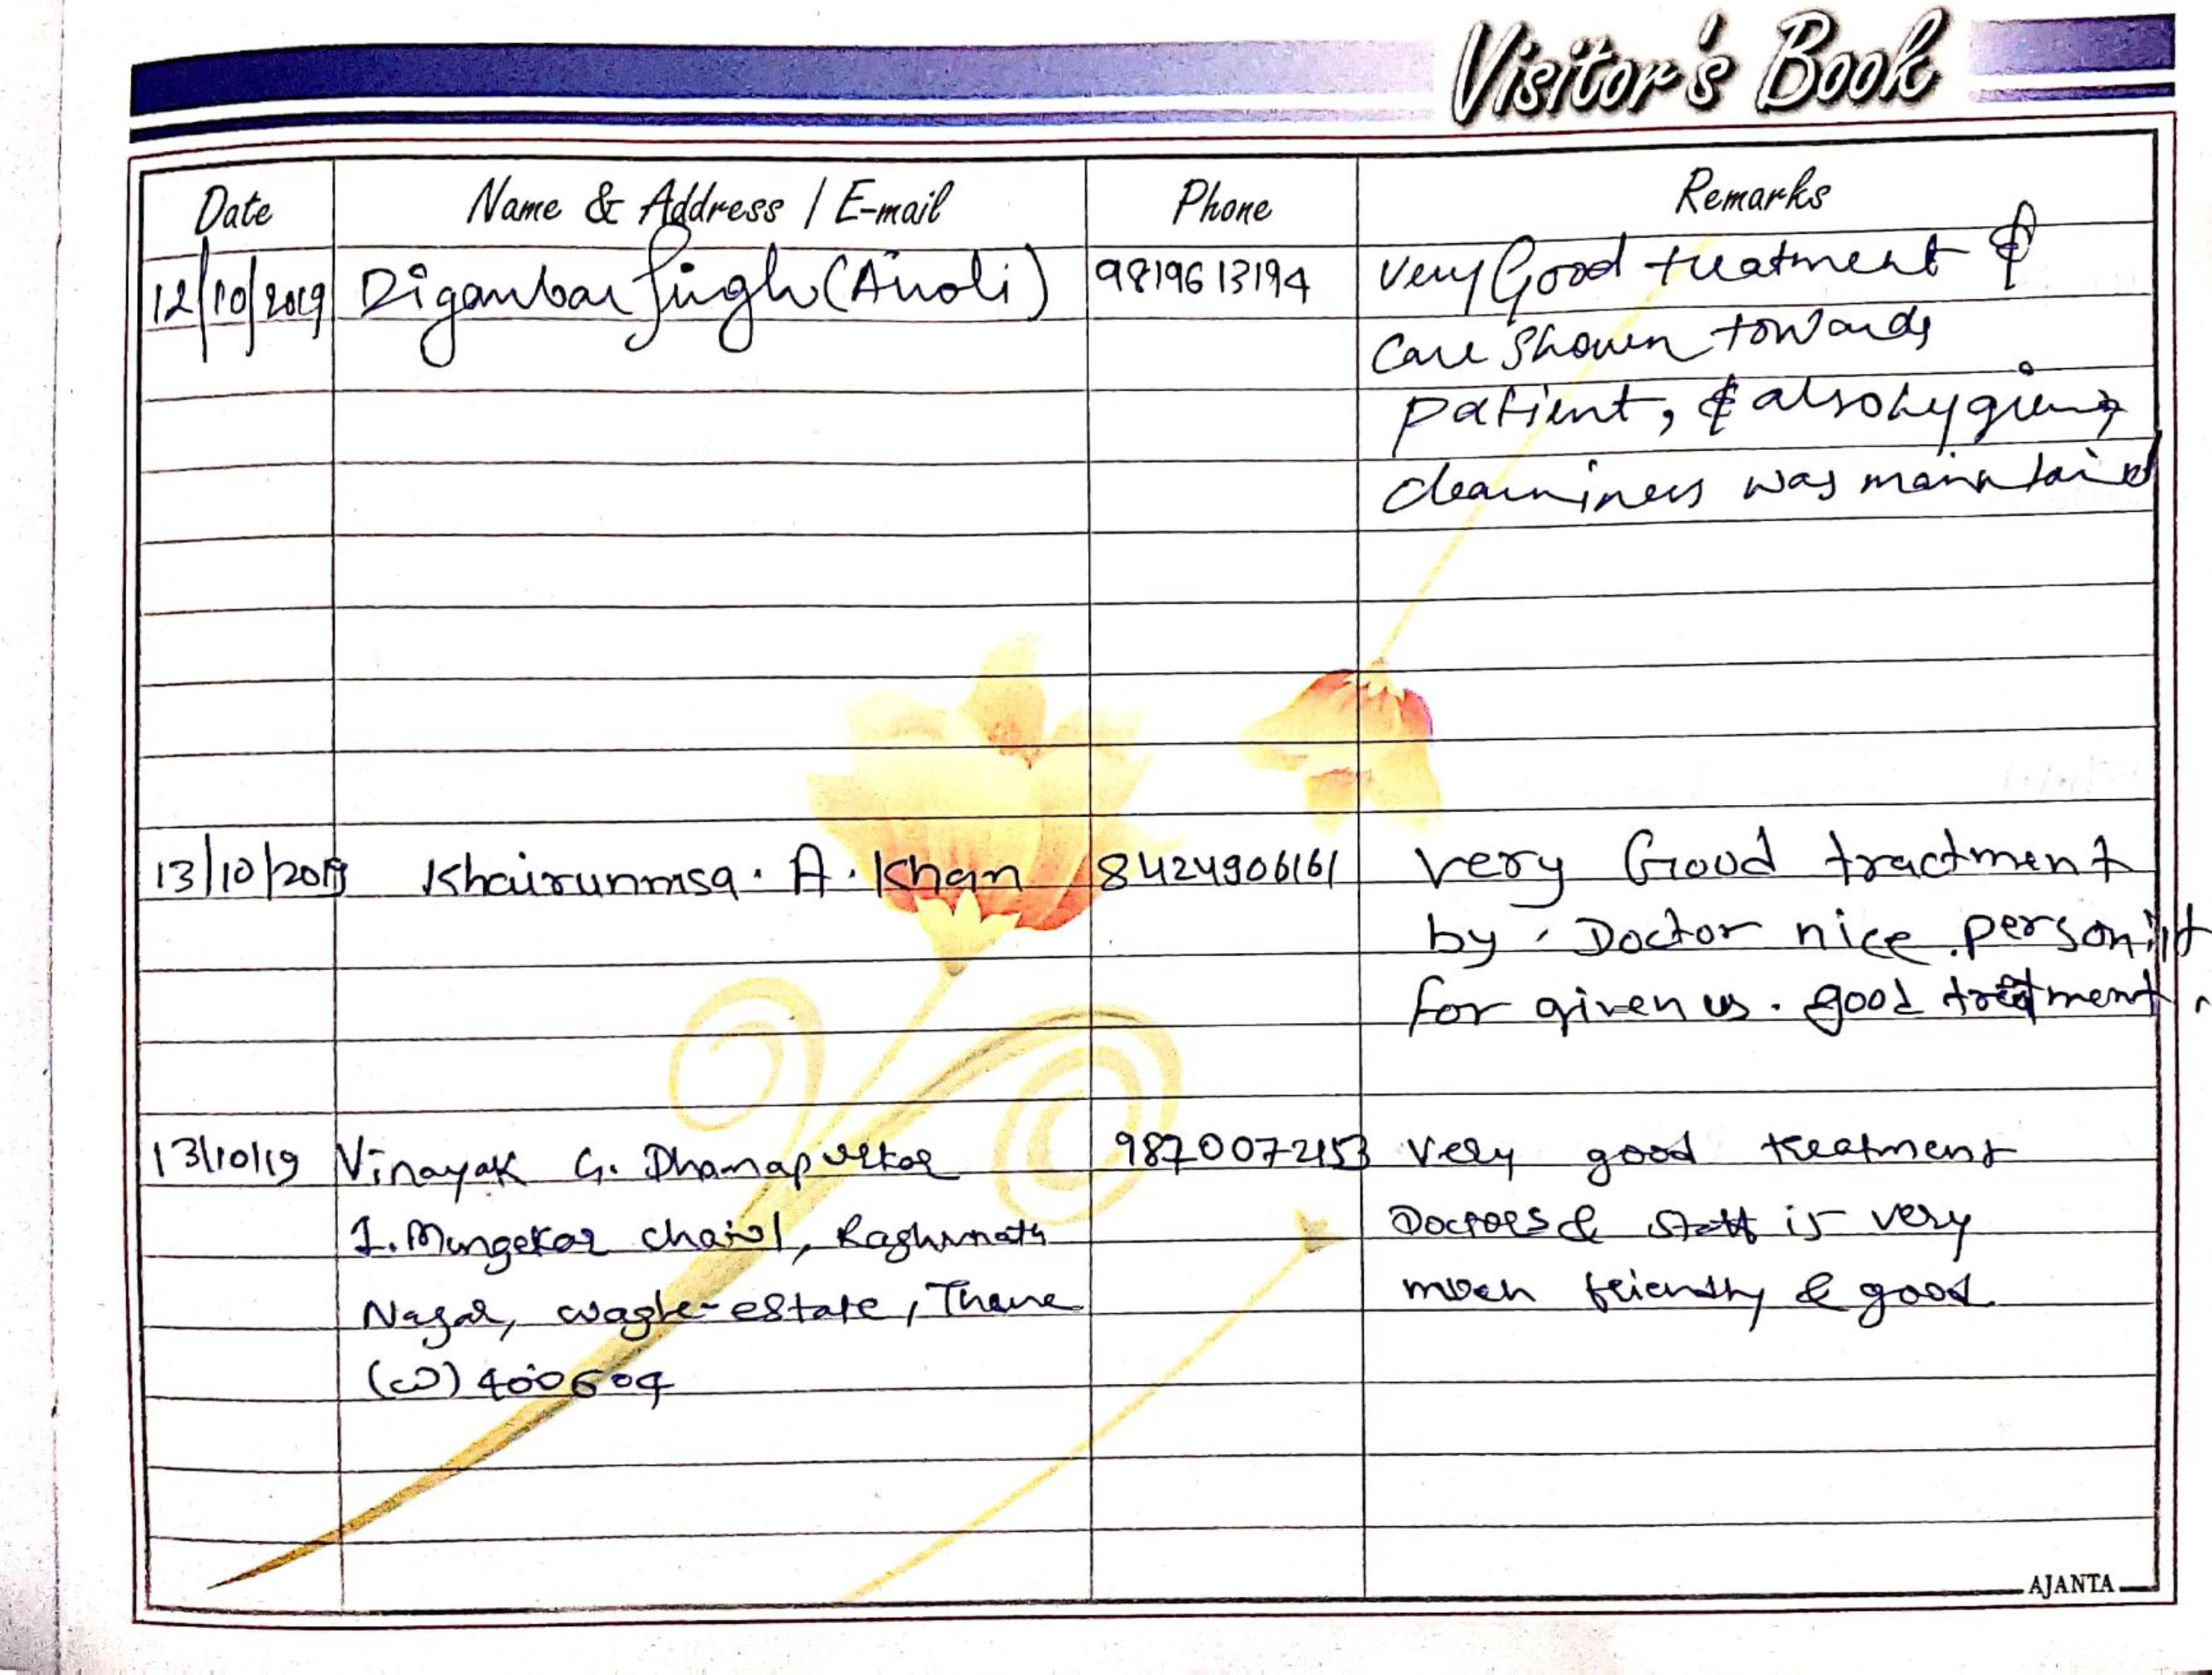 Visitor's Book
Date Name & Address / E-mail Phone Remarks
12/10/2019 Digambar Singh (Airoli) 9819613194 Very Good treatment &
Care Shown towards
patient, & also hygiene,
cleaniness was maintaind
13/10/2019 Khairunnisa. A. Khan 8424906161 very Good tractment
by. Doctor nice person
for given us. good treatment.
13/10/19 Vinayak G. Dhanapurkar Very good treatment
1. Mungekar chawl, Raghunath Doctors & Staff is very
Nagar, wagle-estate, Thane much friendly & good
(W) 400604
AJANTA